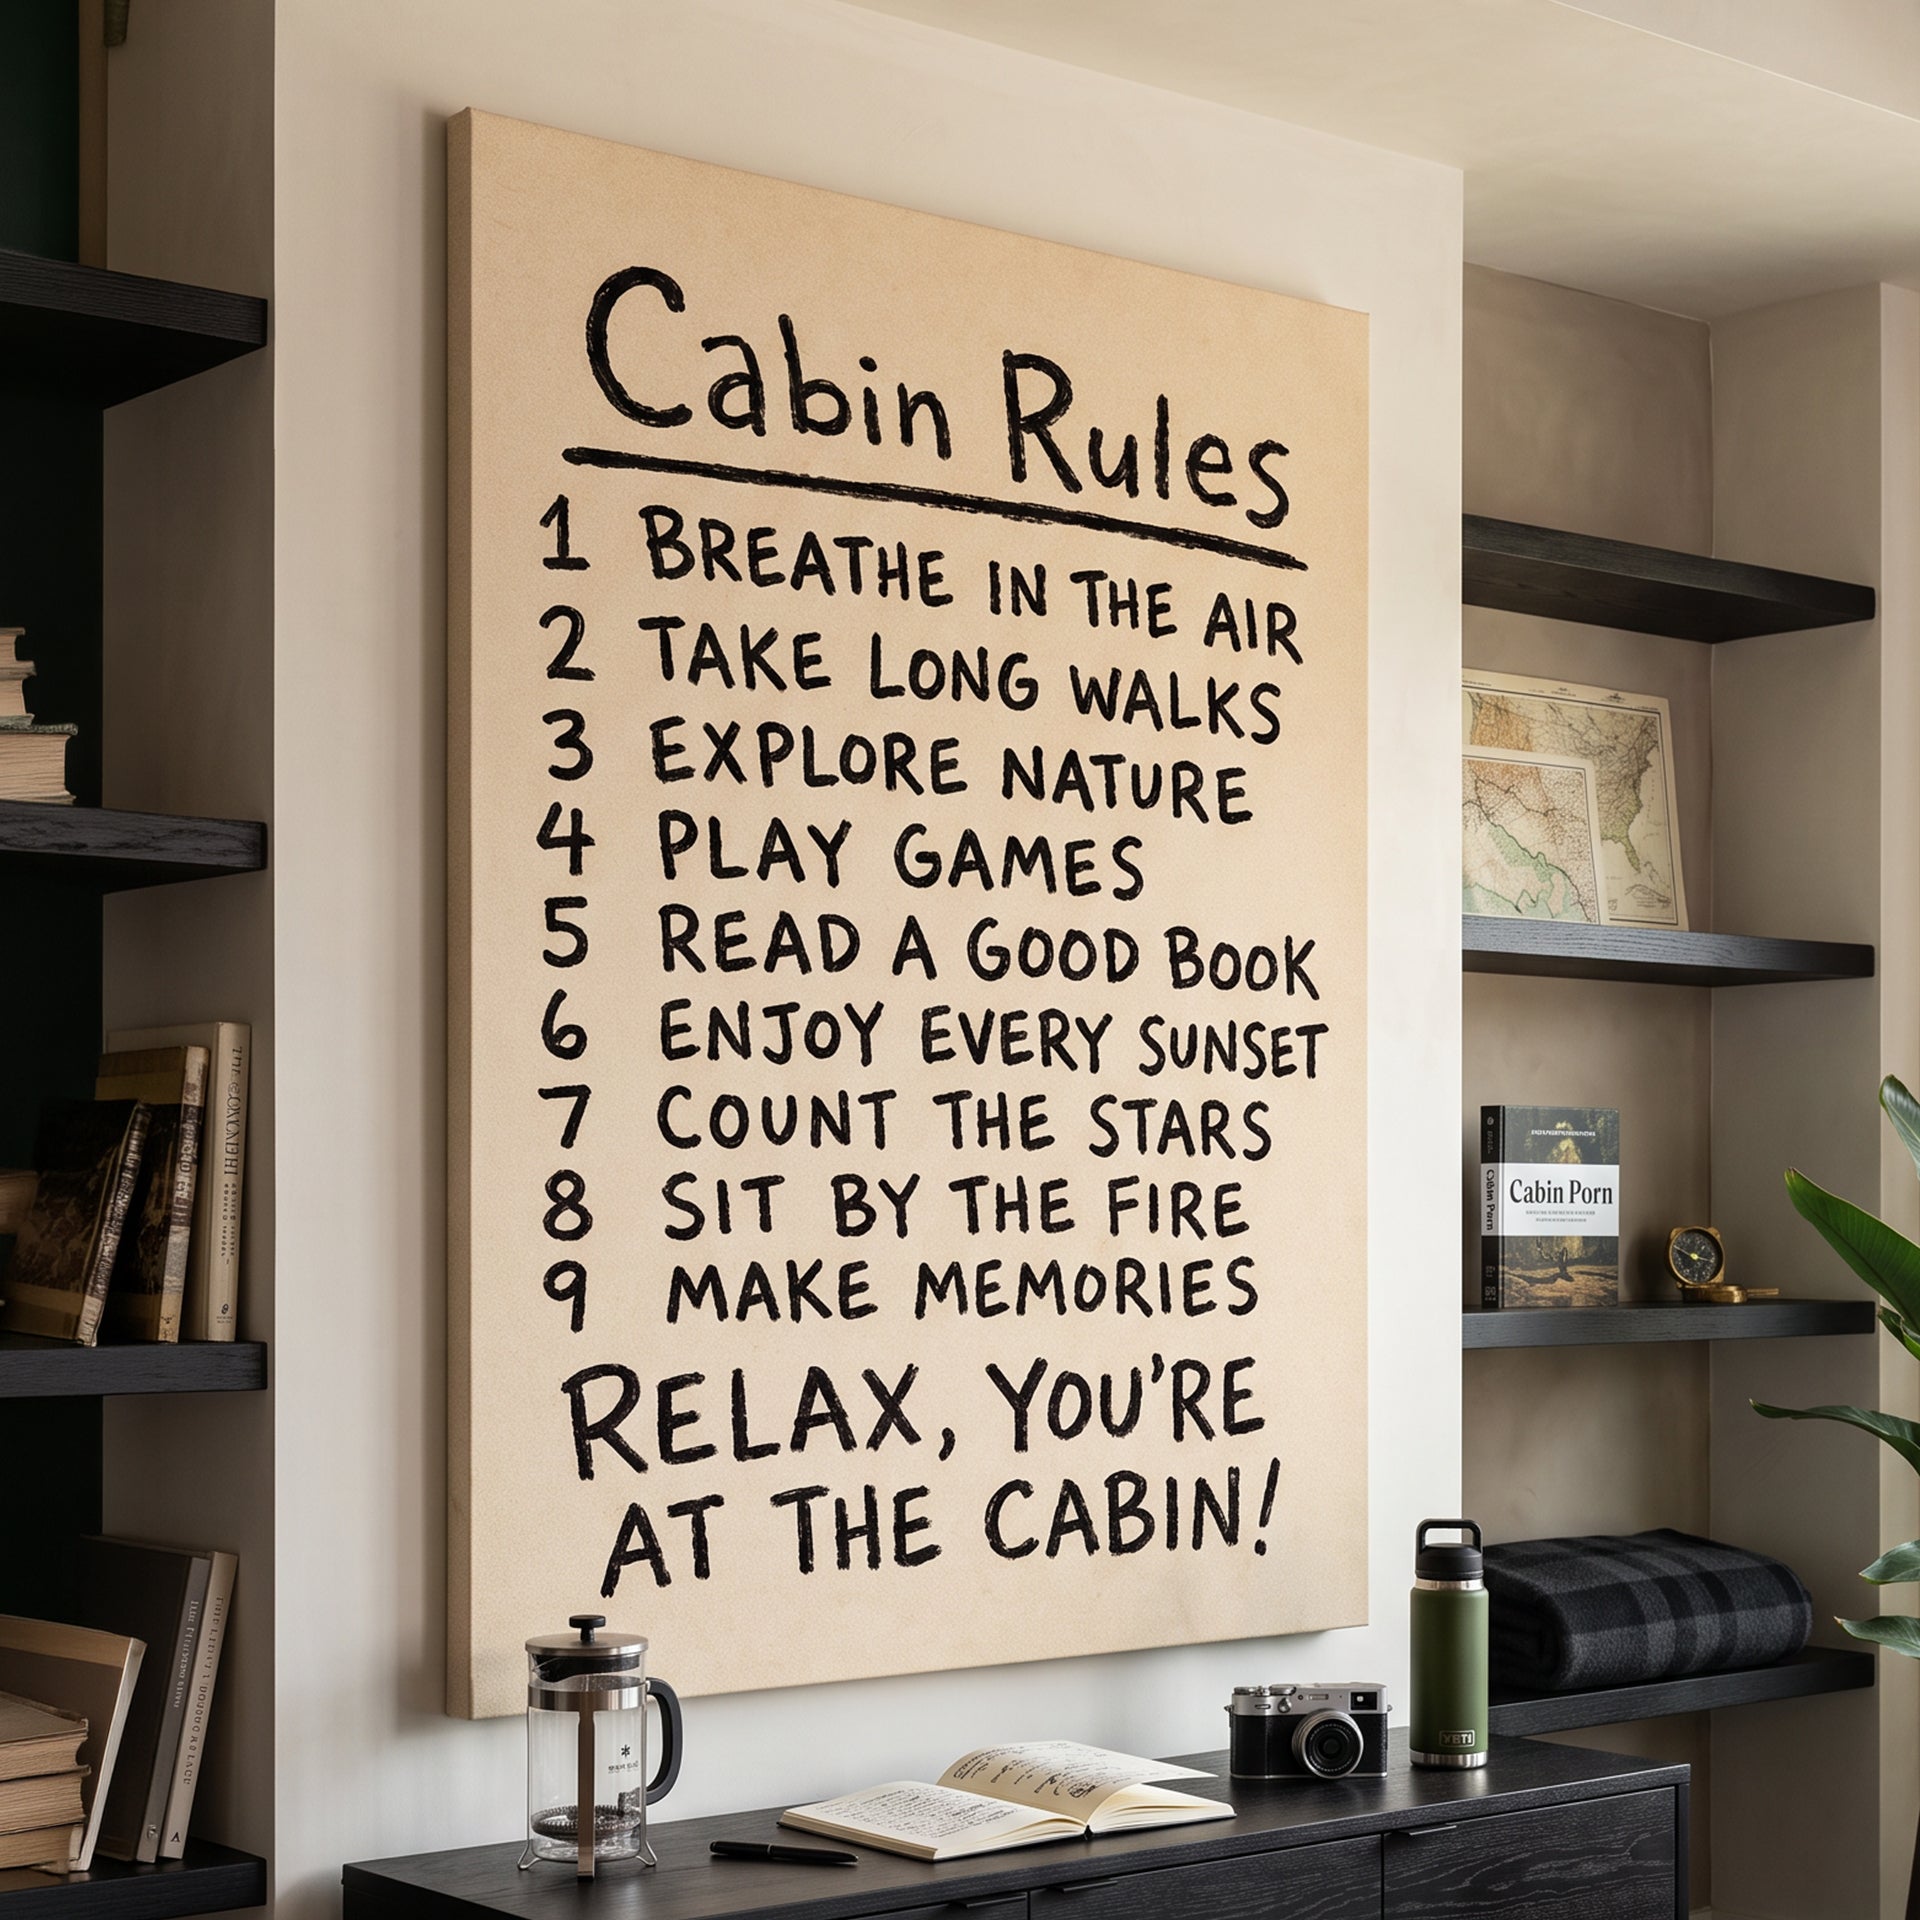 Cabin Rules
1 BREATHE IN THE AIR
2 TAKE LONG WALKS
3 EXPLORE NATURE
4 PLAY GAMES
5 READ A GOOD BOOK
6 ENJOY EVERY SUNSET
7 COUNT THE STARS
8 SIT BY THE FIRE
9 MAKE MEMORIES
RELAX, YOU'RE
AT THE CABIN!
Cabin Porn
Cabin Porn
YETI